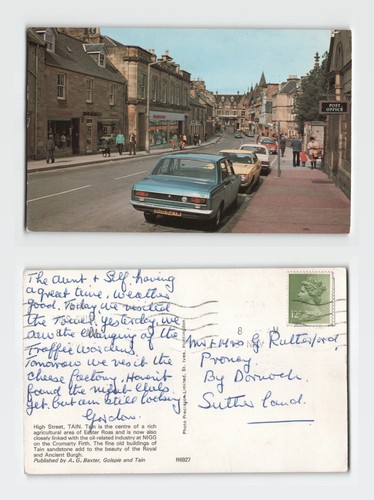 POST
OFFICE
The Aunt & Self having
a great time. Weather
good. Today we visited
the Tower, yesterday, we
saw the changing of the
Traffic Wardens.
Tomorrow we visit the
cheese factory. Haven't
found the night clubs
yet. but am still looking
Gordon.
High Street, TAIN. Tain is the centre of a rich
agricultural area of Easter Ross and is now also
closely linked with the oil-related industry at NIGG
on the Cromarty Firth. The fine old buildings of
Tain sandstone add to the beauty of the Royal
and Ancient Burgh.
Published by A. G. Baxter, Golspie and Tain
Photo Precision Limited, St. Ives,
8
12
Mr & Mrs G. Rutherford,
Proncy.
By Dornoch.
Sutherland.